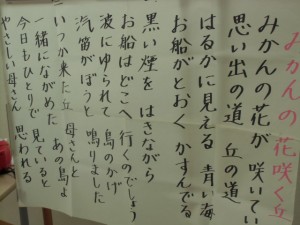 みかんの花咲く丘
みかんの花が 咲いてい
思い出の道 丘の道
はるかに見える 青い海
お船がとおく かすんでる
黒い煙を はきながら
お船はどこへ 行くのでしょう
波にゆられて 島のかげ
汽笛がぼうと 鳴りました
いつか来た丘 母さんと
一緒にながめた あの島よ
今日もひとりで 見ていると
やさしい母さん 思われる